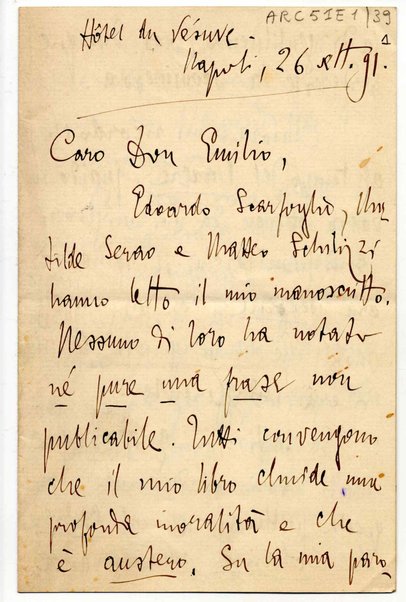 ARC51E1/39
1
Hôtel du Vésuve.
Napoli, 26 sett. 91.
Caro Don Emilio,
Edoardo Scarfoglio, Ma-
tilde Serao e Matteo Schilizzi
hanno letto il mio manoscritto.
Nessuno di loro ha notato
né pure una frase non
publicabile. Tutti convengono
che il mio libro chiude una
profonda moralità e che
è austero. Su la mia paro